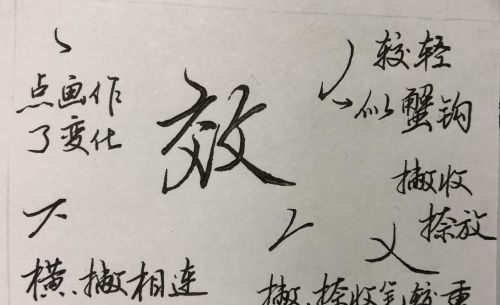 点画作
了变化
效
较轻
似蟹钩
撇收
捺放
横、撇相连
撇、捺收笔较重